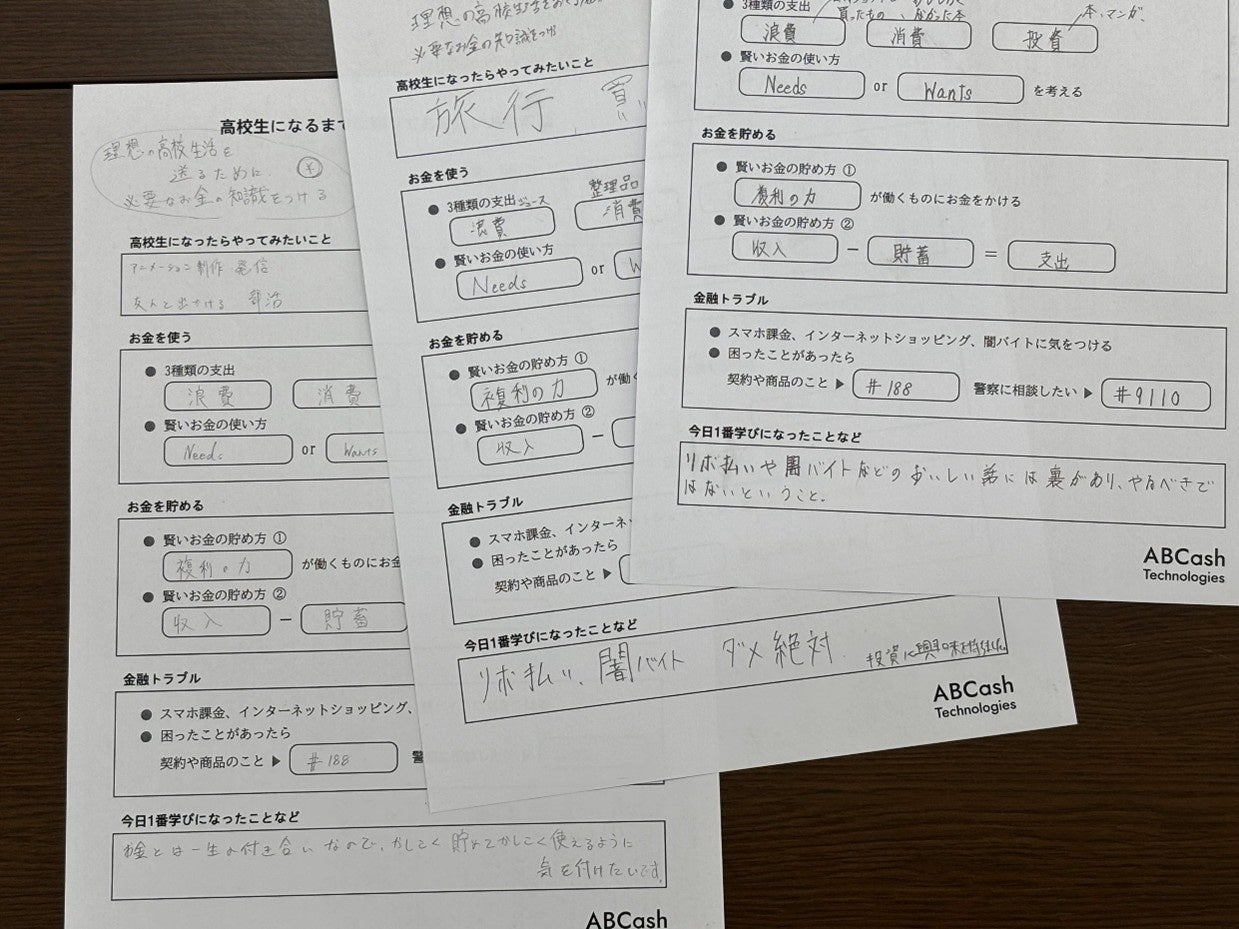 高校生になるまで
理想の高校生活を
送るために ¥
必要なお金の知識をつける
高校生になったらやってみたいこと
アニメーション制作 発信
友人と出かける 部活
お金を使う
● 3種類の支出
浪費 消費
● 賢いお金の使い方
Needs or Wants
お金を貯める
● 賢いお金の貯め方 ①
複利の力 が働くものにお金
● 賢いお金の貯め方 ②
収入 − 貯蓄
金融トラブル
● スマホ課金、インターネットショッピング、
● 困ったことがあったら
契約や商品のこと ▶ #188 警
今日1番学びになったことなど
お金とは一生の付き合いなので、かしこく貯めてかしこく使えるように
気を付けたいです。
ABCash
理想の高校生活を
必要なお金の知識をつけ
高校生になったらやってみたいこと
旅行 買い
お金を使う
● 3種類の支出 ジュース 整理品
浪費 消費
● 賢いお金の使い方
Needs or W
お金を貯める
● 賢いお金の貯め方 ①
複利の力 が働く
● 賢いお金の貯め方 ②
収入 −
金融トラブル
● スマホ課金、インターネ
● 困ったことがあったら
契約や商品のこと ▶
今日1番学びになったことなど
リボ払い、闇バイト ダメ絶対. 投資に興味を持ちました
ABCash
Technologies
● 3種類の支出 買ったもの 本、マンガ、
浪費 消費 投資
● 賢いお金の使い方
Needs or Wants を考える
お金を貯める
● 賢いお金の貯め方 ①
複利の力 が働くものにお金をかける
● 賢いお金の貯め方 ②
収入 − 貯蓄 = 支出
金融トラブル
● スマホ課金、インターネットショッピング、闇バイトに気をつける
● 困ったことがあったら
契約や商品のこと ▶ #188 警察に相談したい ▶ #9110
今日1番学びになったことなど
リボ払いや闇バイトなどのおいしい話には裏があり、やるべきで
はないということ.
ABCash
Technologies